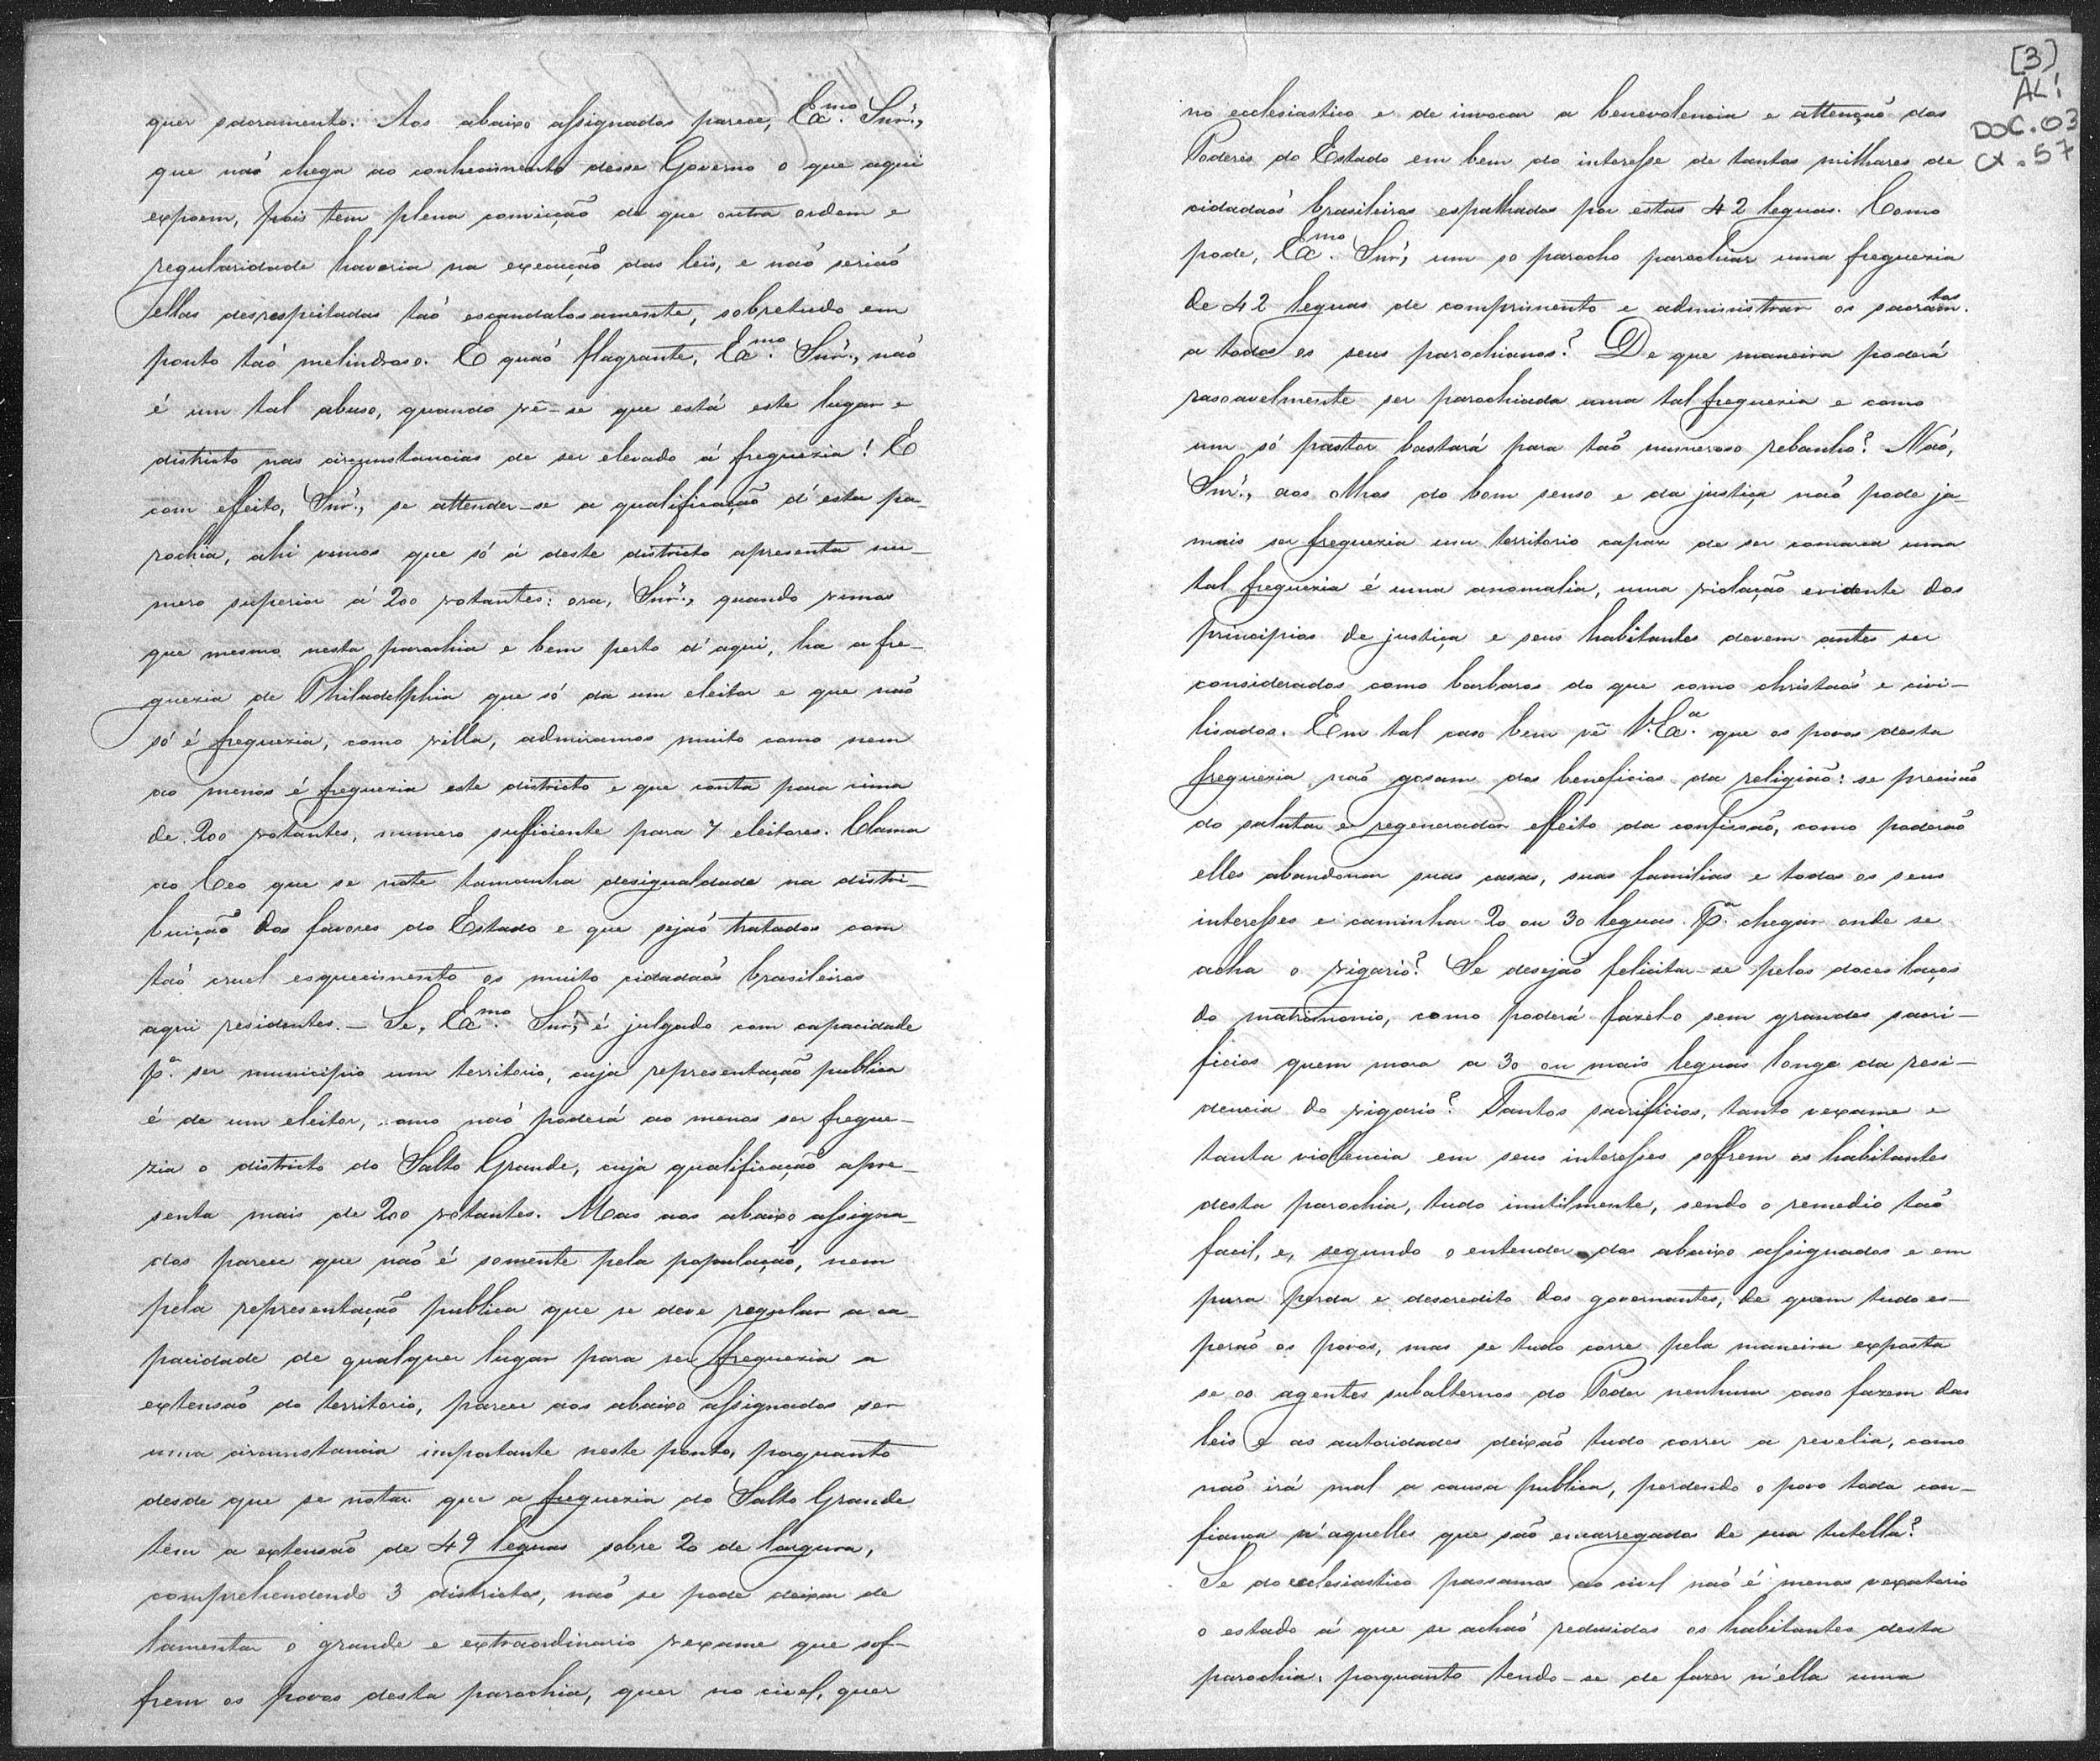 quer sacramento. Aos abaixo assignados parece, Exmo. Snr.,
que naõ chega ao conhecimento desse Governo o que aqui
expoem, pois tem plena convicção de que outra ordem e
regularidade haveria na execução das leis, e naõ seriaõ
ellas desrespeitadas taõ escandalosamente, sobretudo em
ponto taõ melindroso. E quaõ flagrante, Exmo. Snr., naõ
é um tal abuso, quando vê-se que está este lugar e
districto nas circunstancias de ser elevado á freguezia! E
com effeito, Snr., se attender-se a qualificação d'esta pa-
rochia, ahi vemos que só a deste districto apresenta nu-
mero superior á 200 votantes: ora, Snr., quando vemos
que mesmo nesta parochia e bem perto d'aqui, ha a fre-
guezia de Philadelphia que só da um eleitor e que naõ
só é freguezia, como villa, admiramos muito como nem
ao menos é freguezia este districto e que conta para cima
de 200 votantes, numero sufficiente para 7 eleitores. Clama
ao Ceo que se note tamanha desigualdade na distri-
buição dos favores do Estado e que sejaõ tratados com
taõ cruel esquecimento os muito cidadaõs brasileiros
aqui residentes. – Se, Exmo. Snr., é julgado com capacidade
pª. ser municipio um territorio, cuja representação publica
é de um eleitor, como naõ poderá ao menos ser fregue-
zia o districto do Salto Grande, cuja qualificação apre-
senta mais de 200 votantes. Mas aos abaixo assigna-
dos parece que naõ é somente pela população, nem
pela representação publica que se deve regular a ca-
pacidade de qualquer lugar para ser freguezia a
extensaõ do territorio, parece aos abaixo assignados ser
uma circunstancia importante neste ponto, porquanto
desde que se notar que a freguezia do Salto Grande
têm a extensaõ de 49 leguas sobre 20 de largura,
comprehendendo 3 districtos, naõ se pode deixar de
lamentar o grande e extraordinario vexame que sof-
frem os povos desta parochia, quer no civel, quer
[3)
AL!
DOC. 03
CX. 57
no ecclesiastico e de invocar a benevolencia e attençaõ dos
Poderes do Estado em bem do interesse de tantos milhares de
cidadaõs brasileiros espalhados por estas 42 leguas. Como
pode, Exmo. Snr., um so parocho parochiar uma freguezia
de 42 leguas de comprimento e administrar os sacramtos.
a todos os seus parochianos? De que maneira poderá
rasoavelmente ser parochiada uma tal freguezia e como
um só pastor bastará para taõ numeroso rebanho? Naõ,
Snr., aos olhos do bom senso e da justiça naõ pode ja-
mais ser freguezia um territorio capaz de ser comarca uma
tal freguezia é uma anomalia, uma violação evidente dos
principios de justiça e seus habitantes devem antes ser
considerados como barbaros do que como christaõs e civi-
lisados. Em tal caso bem vê V. Exª. que os povos desta
freguezia naõ gosam dos beneficios da religiaõ: se precisaõ
do salutar e regenerador effeito da confissaõ, como poderaõ
elles abandonar suas casas, suas familias e todos os seus
interesses e caminhar 20 ou 30 leguas pª. chegar onde se
acha o vigario? Se desejaõ felicitar-se pelos doces laços
do matrimonio, como poderá fazelo sem grandes sacri-
ficios quem mora a 30 ou mais leguas longe da resi-
dencia do vigario? Tantos sacrificios, tanto vexame e
tanta violencia em seus interesses soffrem os habitantes
desta parochia, tudo inutilmente, sendo o remedio taõ
facil, e, segundo o entender dos abaixo assignados e em
pura perda e descredito dos governantes, de quem tudo es-
peraõ os povos, mas se tudo corre pela maneira exposta
se os agentes subalternos do Poder nenhum caso fazem das
leis e as autoridades deixaõ tudo correr a revelia, como
naõ irá mal a causa publica, perdendo o povo toda con-
fiança n'aquelles que saõ encarregados de sua tutella?
Se do ecclesiastico passamos ao civel naõ é menos vexatorio
o estado á que se achaõ redusidos os habitantes desta
parochia, porquanto tendo-se de fazer n'ella uma